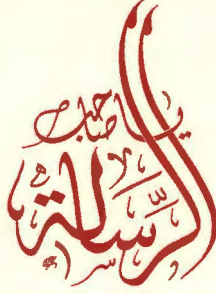 يا صاحب
الرِّسالة